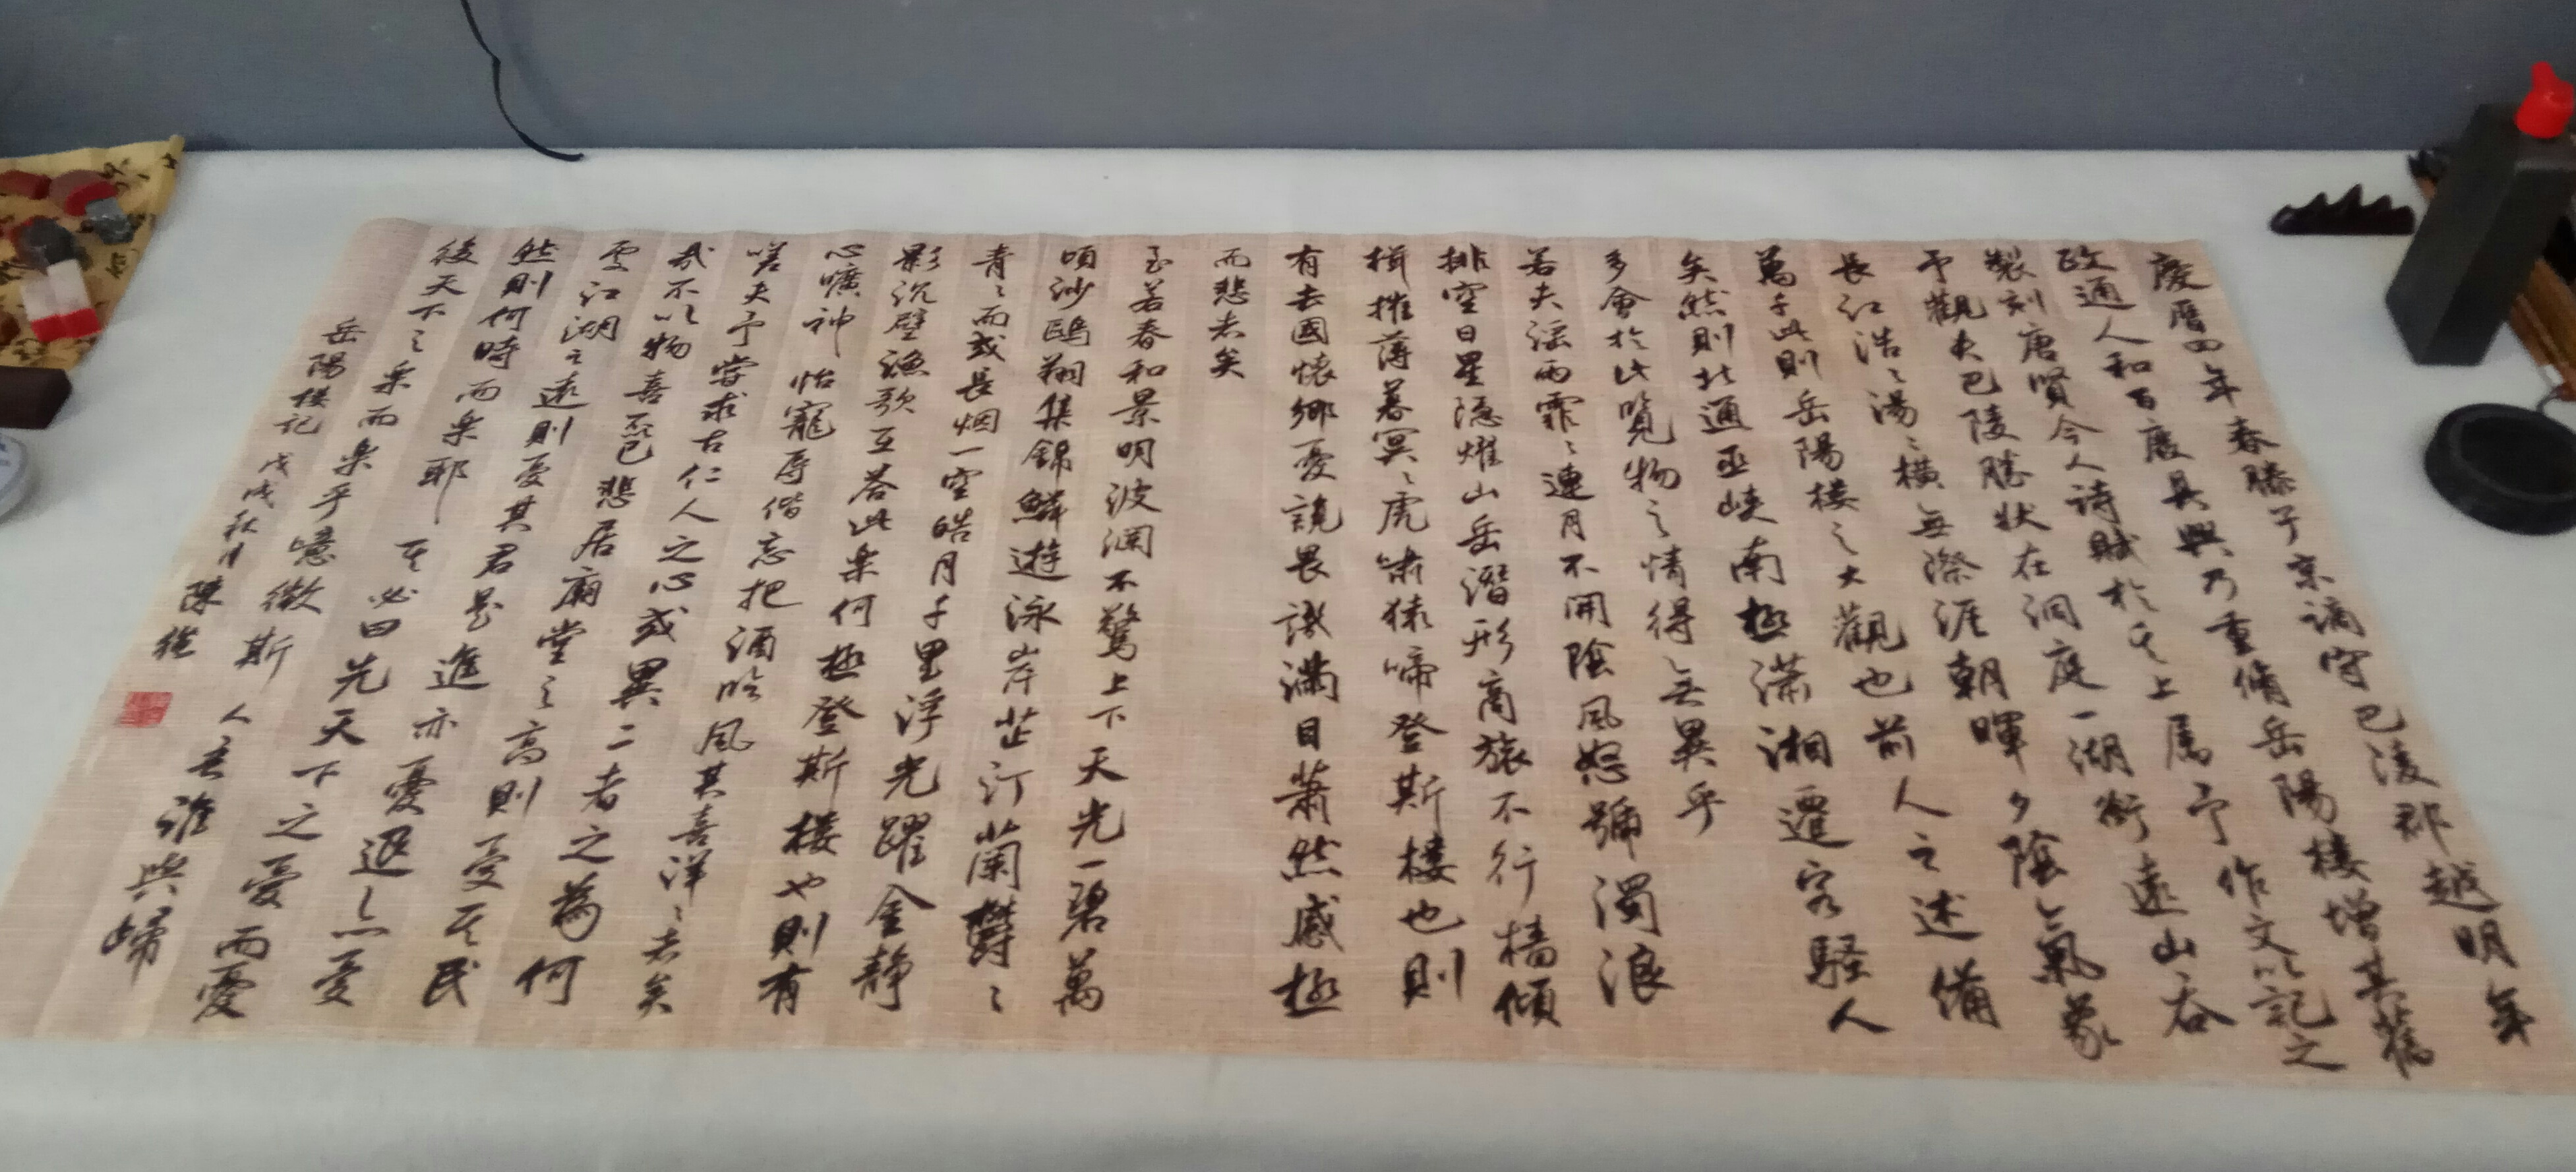 慶曆四年春滕子京謫守巴陵郡越明年
政通人和百廢具興乃重脩岳陽楼增其舊
製刻唐賢今人詩賦於其上属予作文以記之
予觀夫巴陵勝狀在洞庭一湖銜遠山吞
長江浩〻湯〻橫無際涯朝暉夕陰氣象
萬千此則岳陽楼之大觀也前人之述備
矣然則北通巫峽南極瀟湘遷客騷人
多會於此覽物之情得無異乎
若夫淫雨霏〻連月不開陰風怒號濁浪
排空日星隱耀山岳潛形商旅不行檣傾
楫摧薄暮冥〻虎嘯猿啼登斯楼也則
有去國懷鄉憂讒畏譏滿目蕭然感極
而悲者矣
至若春和景明波瀾不驚上下天光一碧萬
頃沙鷗翔集錦鱗遊泳岸芷汀蘭欝〻
青〻而或長烟一空皓月千里浮光躍金靜
影沉璧漁歌互答此樂何極登斯楼也則有
心曠神怡寵辱偕忘把酒臨風其喜洋〻者矣
嗟夫予嘗求古仁人之心或異二者之為何
哉不以物喜不以己悲居廟堂之高則憂其民
處江湖之遠則憂其君是進亦憂退亦憂
然則何時而樂耶其必曰先天下之憂而憂
後天下之樂而樂乎噫微斯人吾誰與歸
岳陽楼記 戊戌秋月 陳